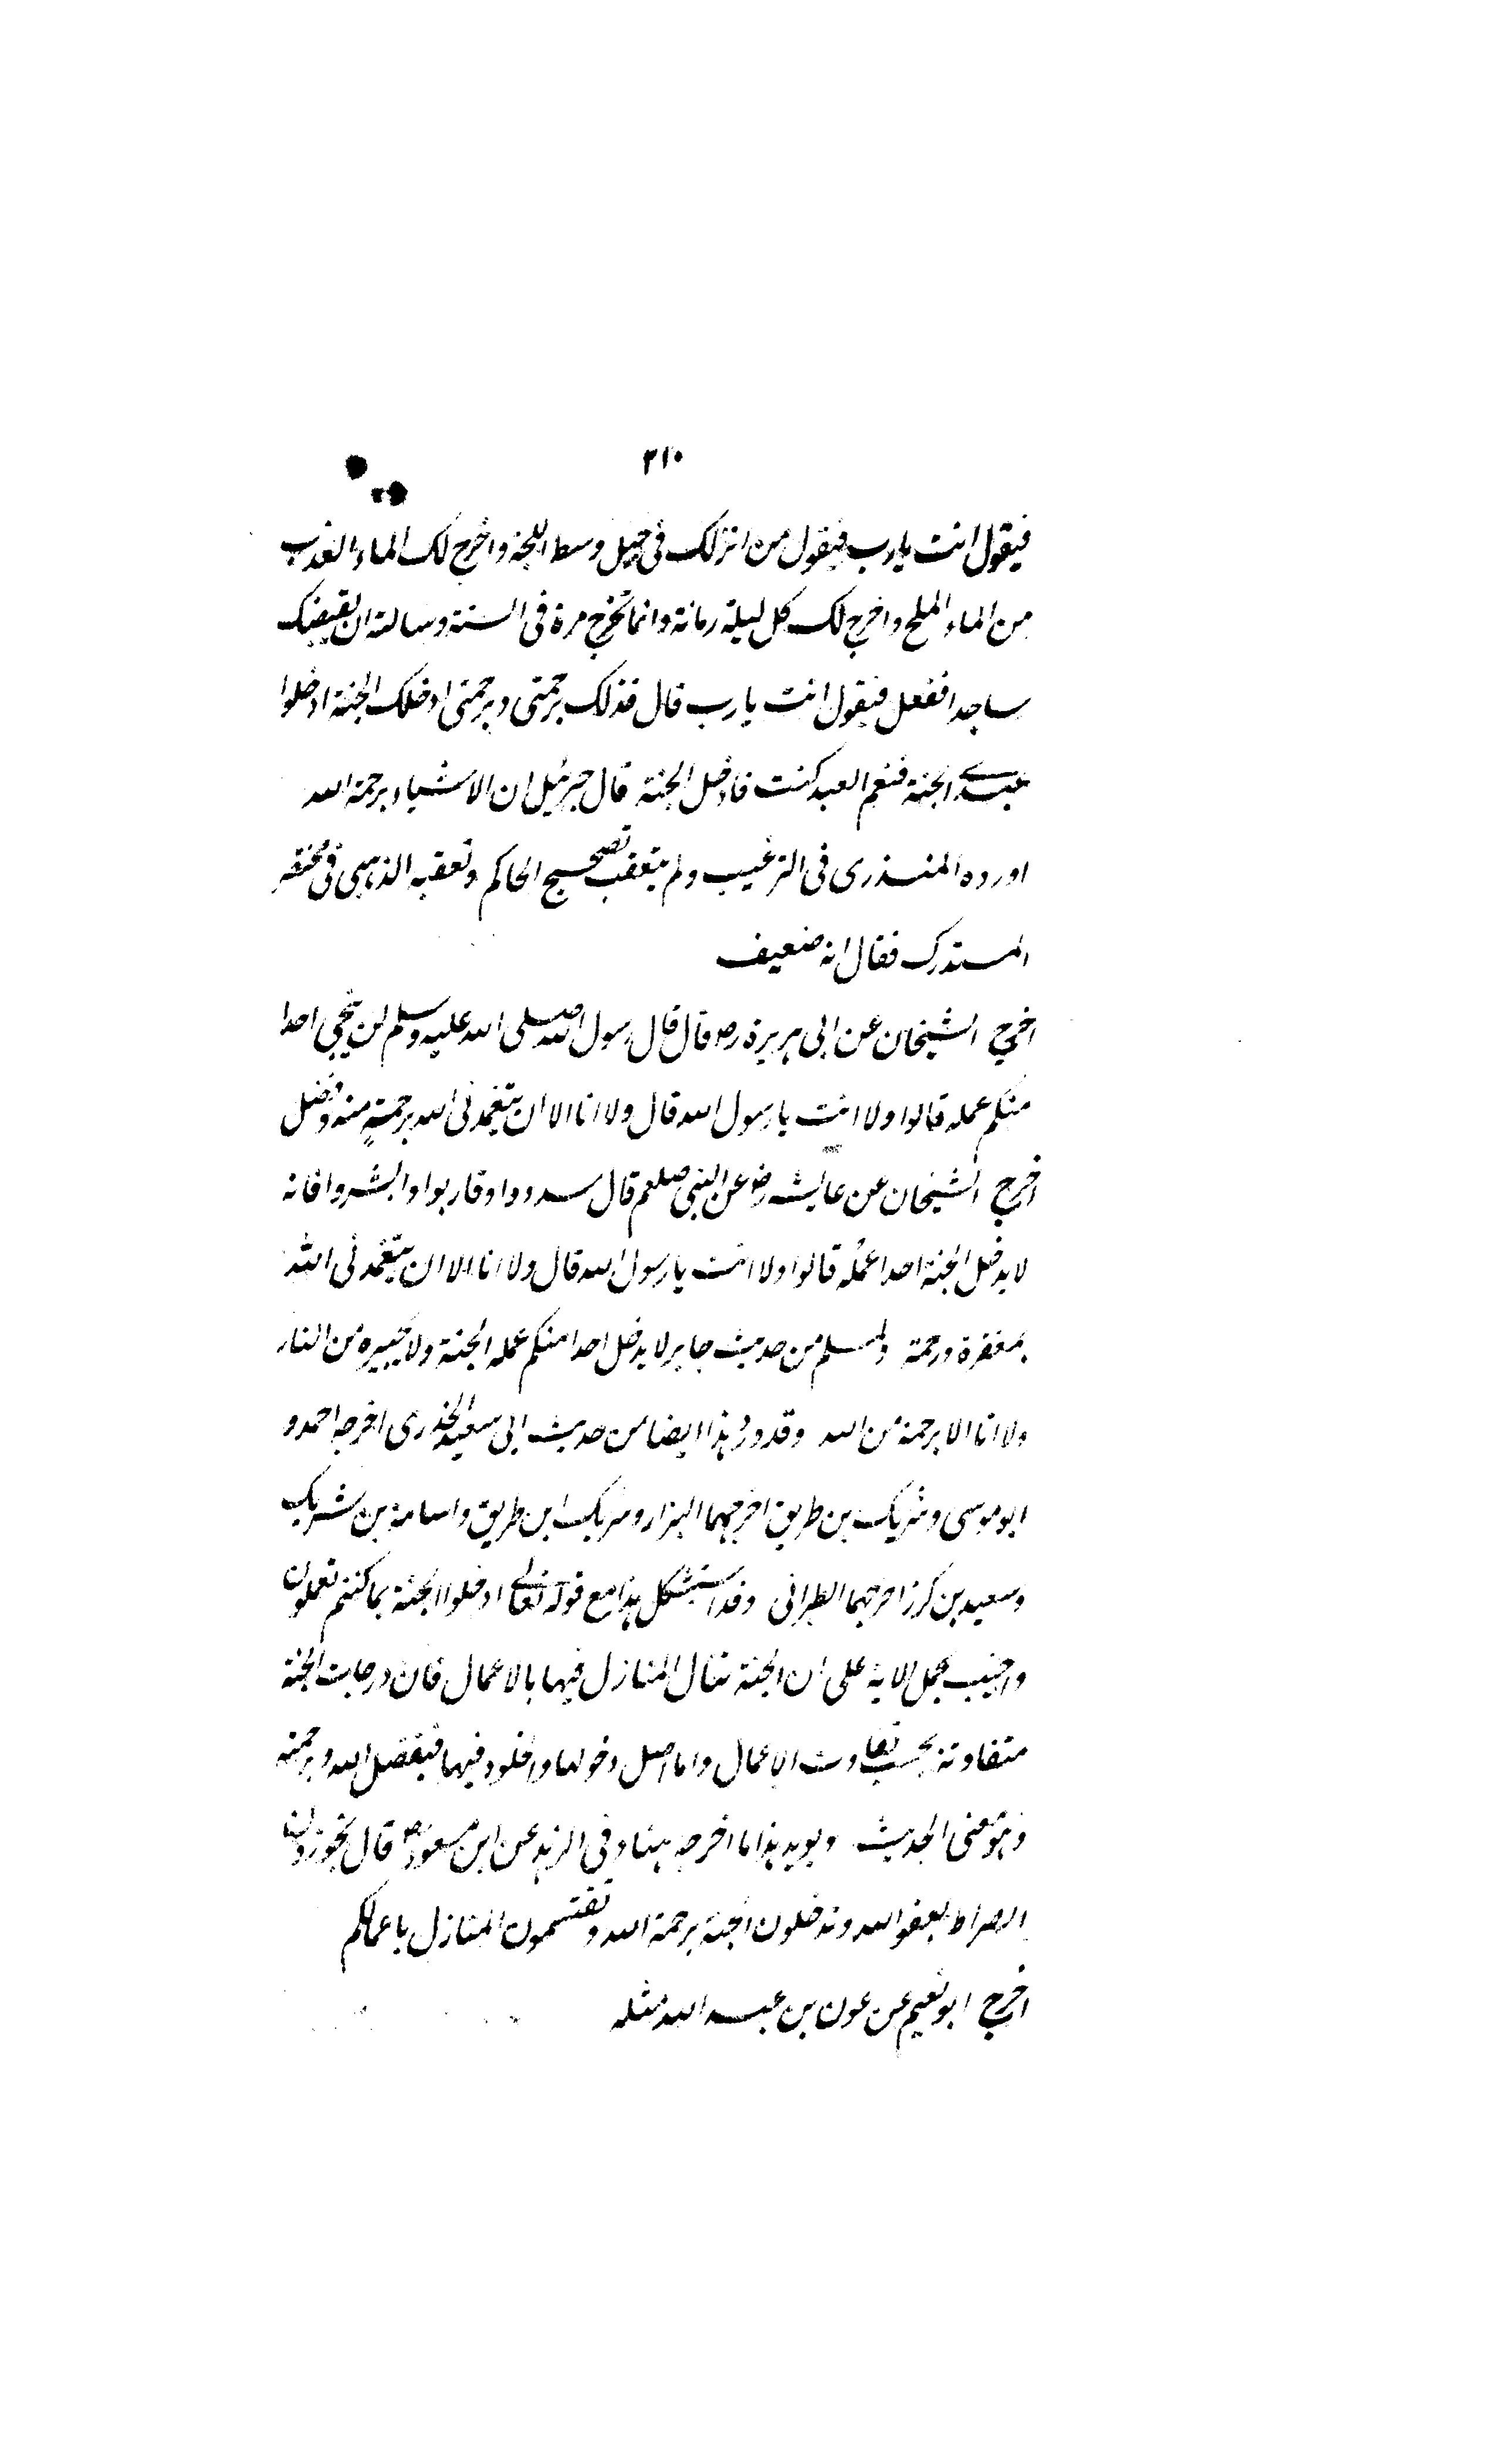 ۳۱۰
فیقول انت یارب فیقول من انزلک فی جبل وسط اللجة واخرج لک الماء العذب
من الماء الملح واخرج لک کل لیلة رمانة وانما تخرج مرة فی السنة وسالته ان یقبضک
ساجدا ففعل فیقول انت یارب قال فذلک برحمتی وبرحمتی ادخلک الجنة ادخلوا
عبدی الجنة فنعم العبد کنت فادخل الجنة قال جبرئیل ان الاشیاء برحمة الله
اورده المنذری فی الترغیب ولم یتعقب تصحیح الحاکم وتعقبه الذهبی فی مختصر
المستدرک فقال انه ضعیف
اخرج الشیخان عن ابی هریرة رض قال قال رسول الله صلی الله علیه وسلم لن ینجی احدا
منکم عمله قالوا ولا انت یا رسول الله قال ولا انا الا ان یتغمدنی الله برحمة منه وفضل
اخرج الشیخان عن عایشه رض عن النبی صلعم قال سددوا وقاربوا وابشروا فانه
لا یدخل الجنة احدا عمله قالوا ولا انت یا رسول الله قال ولا انا الا ان یتغمدنی الله
بمغفرة ورحمة ولمسلم من حدیث جابر لا یدخل احدا منکم عمله الجنة ولا یجیره من النار
ولا انا الا برحمة من الله وقد ورد هذا ایضا من حدیث ابی سعید الخدری اخرجه احمد و
ابو موسی وشریک بن طریق اخرجهما البزار وشریک ابن طریق واسامة بن شریک
وسعید بن کرز اخرجهما الطبرانی وقد استشکل هذا مع قوله تعالی ادخلوا الجنة بما کنتم تعملون
واجیب بحمل الایة علی ان الجنة تنال المنازل فیها بالاعمال فان درجات الجنة
متفاوتة بحسب تفاوت الاعمال واما اصل دخولها والخلود فیها فبفضل الله وبرحمته
وهو معنی الحدیث ویوید هذا ما اخرجه هناد فی الزهد عن ابن مسعود رض قال تجوزون
الصراط بعفو الله وتدخلون الجنة برحمة الله وتقتسمون المنازل باعمالکم
اخرج ابو نعیم عن عون بن عبد الله مثله